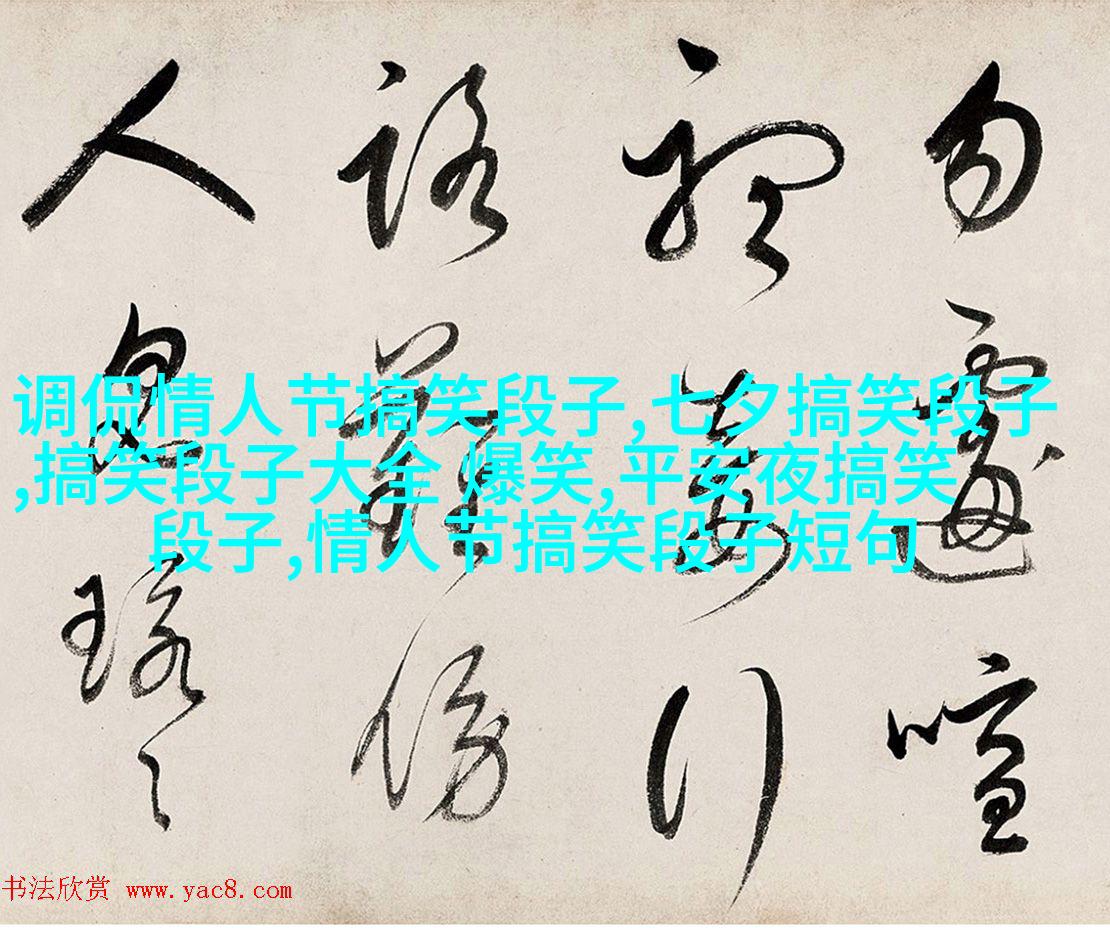 勿遽喧
行
路難傍
人
调侃情人节搞笑段子,七夕搞笑段子
,搞笑段子大全 爆笑,平安夜搞笑
段子,情人节搞笑段子短句
书法欣赏 www.yac8.com